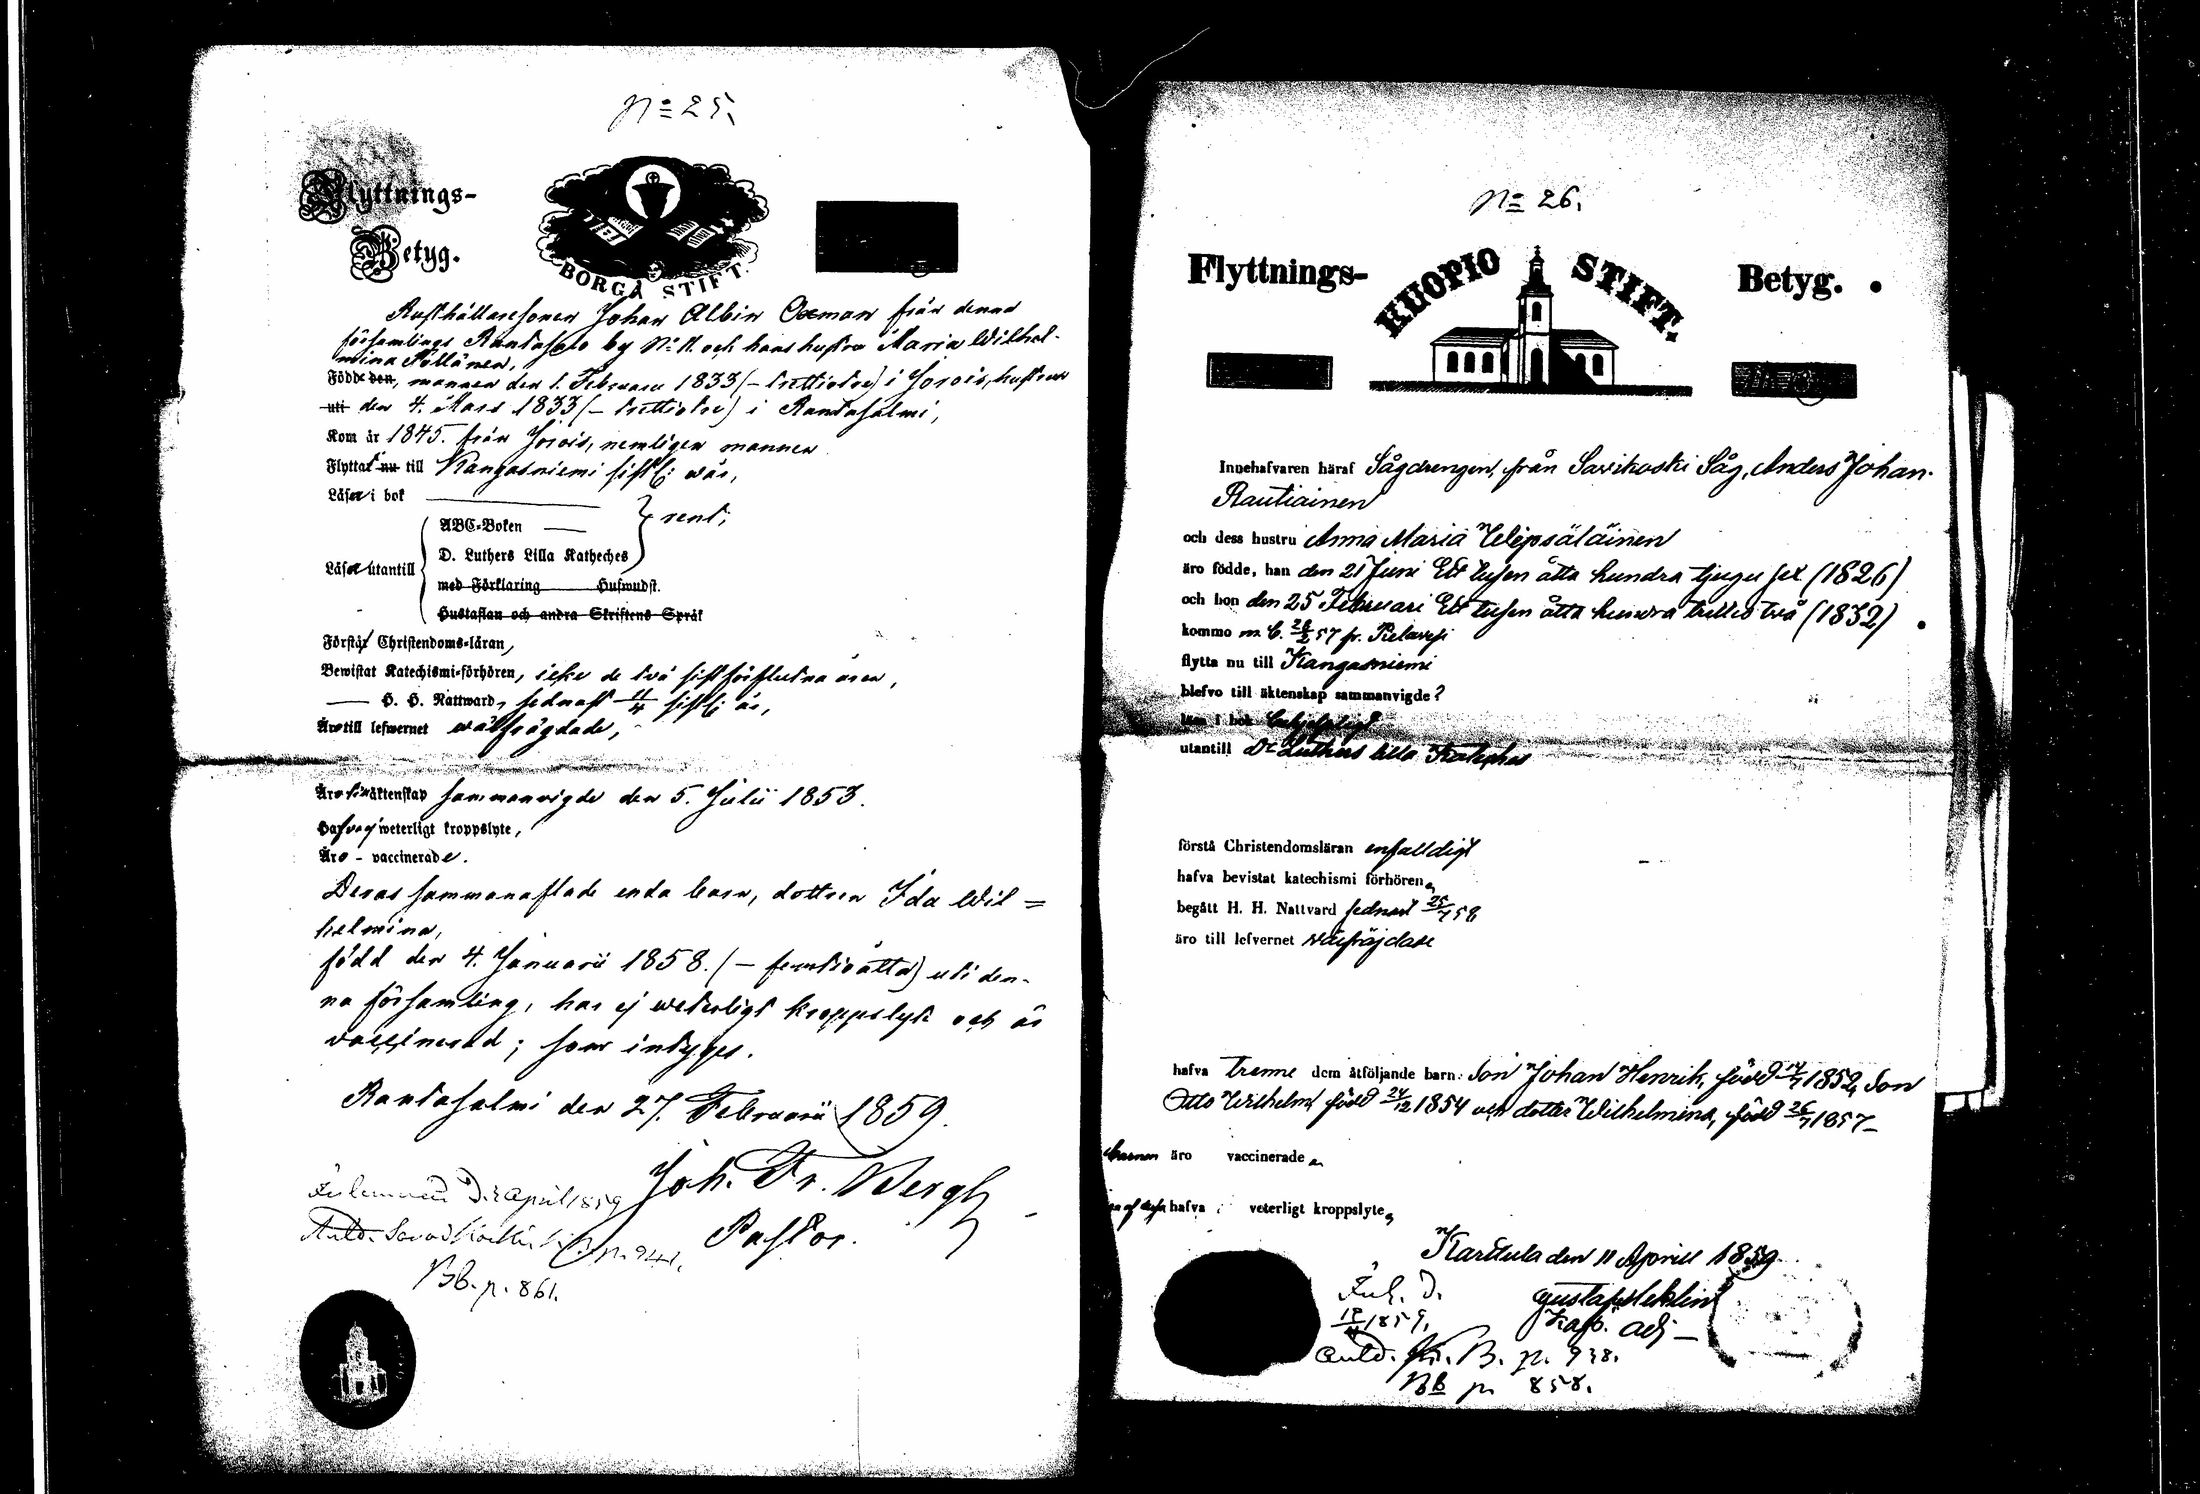 No 25.
Flyttnings-
Betyg.
BORGÅ STIFT.
Rusthållaresonen Johan Albin Oxman från denna
församlings Rantasalo by No 11. och hans hustru Maria Wilhel-
mina Pöllänen,
Född den, mannen den 1. Februarii 1833 (– trettiotre) i Jorois, hustrun
uti den 4. Mars 1833 (– trettiotre) i Randasalmi,
Kom år 1845. från Jorois, nemligen mannen
Flyttar nu till Kangasniemi sistl: vår,
Läser i bok
ABC-Boken
D. Luthers Lilla Katheches } rent;
Läser utantill
med Förklaring Huswudst.
Hustaflan och andra Skriftens Språk
Förstår Christendoms-läran,
Bewistat Katechismi-förhören, icke de två sistförflutna åren,
H. H. Nattward, sednast 11/4 sistl: år,
Äro till lefwernet wälfrägdade,
Äro i äktenskap sammanvigde den 5. Julii 1853.
Hafva ej weterligt kroppslyte,
Äro - vaccinerade.
Deras sammanaflade enda barn, dottren Ida Wil=
helmina,
född den 4. Januarii 1858. (– femtioåtta) uti den-
na församling, har ej weterligt kroppslyte och är
vaccinerad; som intyges.
Randasalmi den 27. Februarii 1859.
Joh. Fr. Bergh
Pastor.
Inlemnad d. 2 April 1859
p. 941.
Bb. p. 861.
No 26.
Flyttnings- KUOPIO STIFT. Betyg.
Innehafvaren häraf Sågdrengen, från Savikoski Såg, Anders Johan
Rautiainen
och dess hustru Anna Maria Welipsäläinen
äro födde, han den 21 Juni Ett tusen åtta hundra tjugu sex (1826)
och hon den 25 Februari Ett tusen åtta hundra trettio två (1832)
kommo m. b. 28/2 57 fr. Pielavesi
flytta nu till Kangasniemi
blefvo till äktenskap sammanvigde?
läsa i bok
utantill Dr Luthers lilla Kateches
förstå Christendomsläran enfalldigt
hafva bevistat katechismi förhören,
begått H. H. Nattvard sednast 25/7 58
äro till lefvernet välfräjdade
hafva trenne dem åtföljande barn: Son Johan Henrik, född 14/7 1852, Son
Otto Wilhelm, född 24/12 1854 och dotter Wilhelmina, född 26/7 1857–
Barnen äro vaccinerade,
hafva veterligt kroppslyte,
Karttula den 11 Aprill 1859.
Gustaf Meklin
Kap. Adj–
Inl. d.
12/4 1859,
Antd. K. B. p. 938.
BB p. 858.